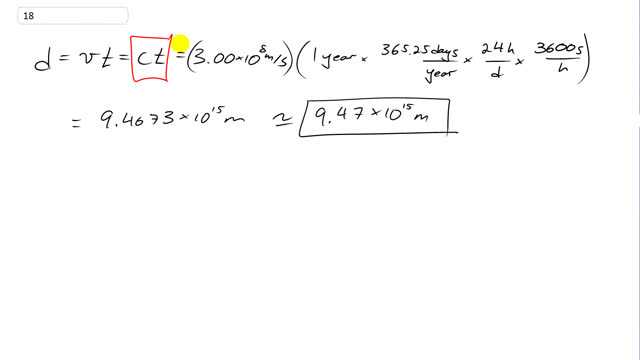 18
d = vt = ct = (3.00×10⁸ m/s) (1 year × 365.25 days/year × 24h/d × 3600s/h)
= 9.4673×10¹⁵ m ≃ 9.47×10¹⁵ m